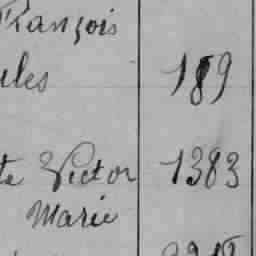 François
ules 189
te Victor 1383
Marie